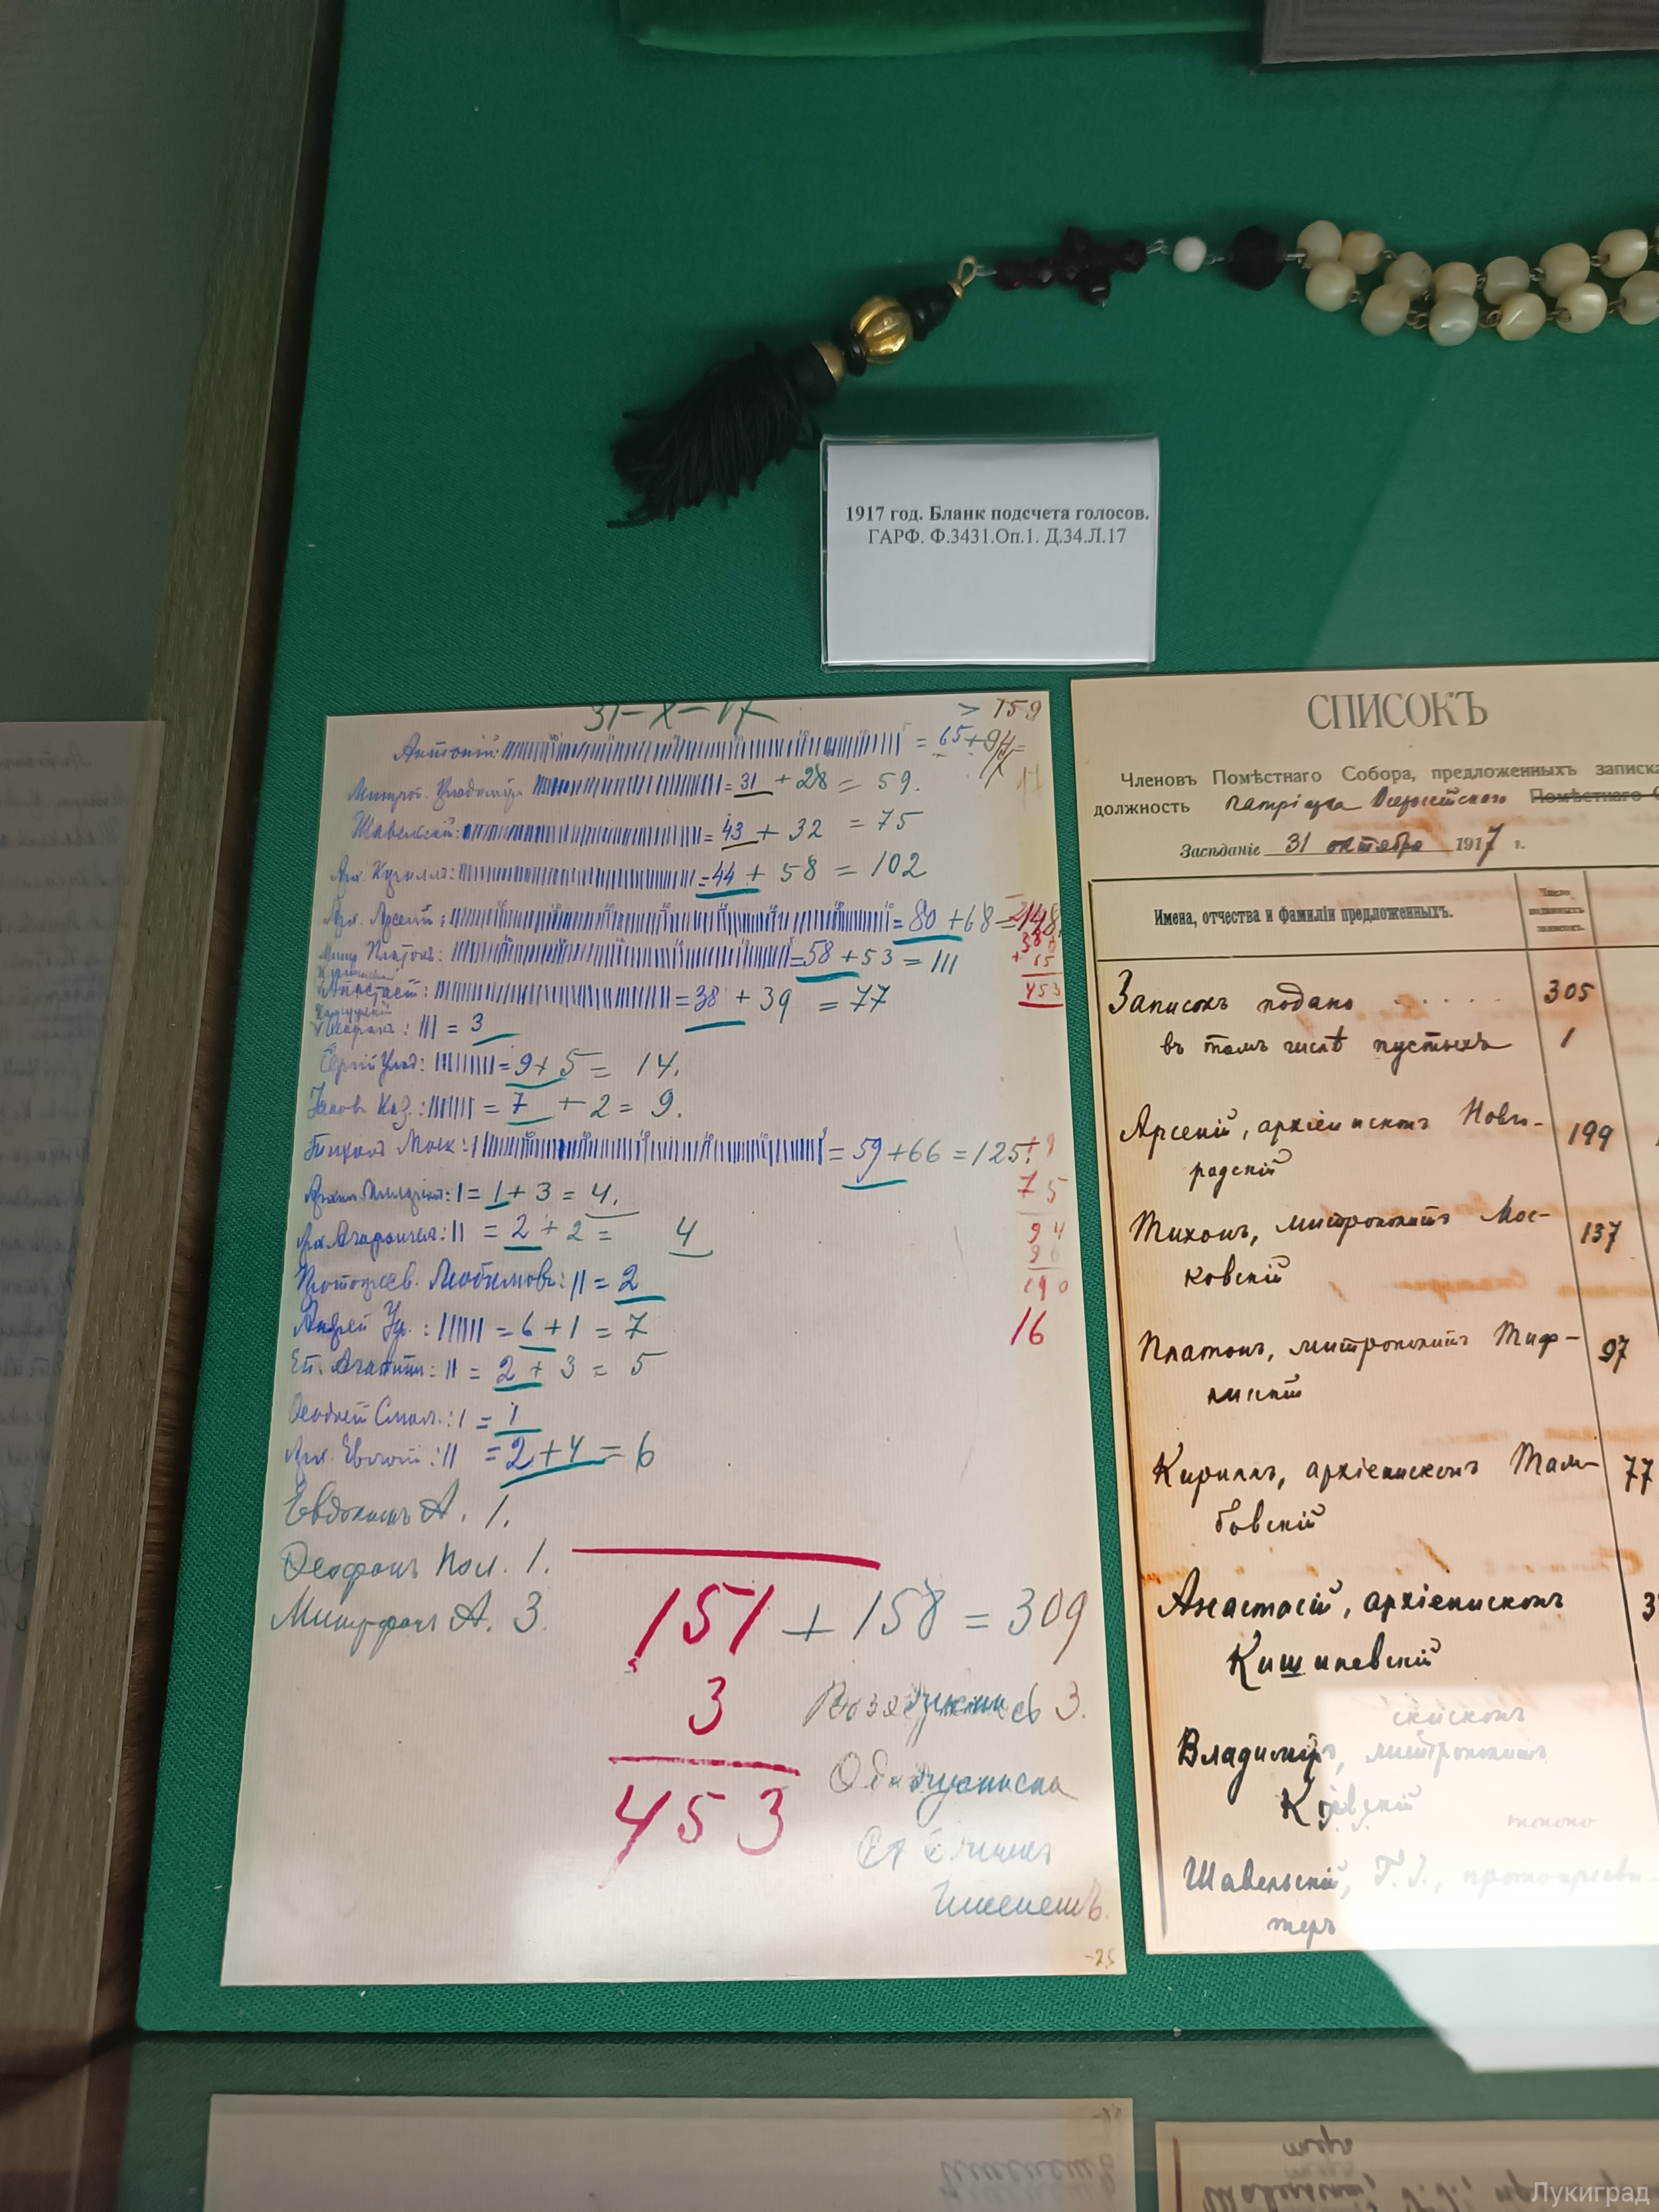 1917 год. Бланк подсчета голосов.
ГАРФ. Ф.3431.Оп.1. Д.34.Л.17
31-X-17
> 159
Антоній: = 65+94=
Митроп. Владимір = 31 + 28 = 59.
Шавельскій: = 43 + 32 = 75
Арх. Кириллъ: = 44 + 58 = 102
Арх. Арсеній: = 80 + 68 = 148
Митр. Платонъ: = 58 + 53 = 111
Анастасій: = 38 + 39 = 77
III = 3
Сергій Влад: = 9 + 5 = 14.
Іаковъ Каз.: = 7 + 2 = 9.
Тихонъ Моск: = 59 + 66 = 125.
I = 1 + 3 = 4.
Арх. Агафангелъ: II = 2 + 2 = 4
Протопресв. Любимовъ: II = 2
Андрей Уф.: IIIIII = 6 + 1 = 7
Еп. Агапитъ: II = 2 + 3 = 5
Феодосій Смол.: I = 1
Арх. Евлогій: II = 2 + 4 = 6
Евдокимъ А. 1.
Феофанъ Пол. 1.
Митрофанъ А. 3.
+ 65
453
75
94
96
190
16
151 + 158 = 309
3
453
3.
Одна записка
имен
-25
СПИСОКЪ
Членовъ Помѣстнаго Собора, предложенныхъ записка
должность патріарха Всероссійскаго Помѣстнаго С
Засѣданіе 31 октября 1917 г.
Имена, отчества и фамиліи предложенныхъ.
Число поданныхъ записокъ.
Записокъ подано . . . . . . 305
въ томъ числѣ пустыхъ 1
Арсеній, архіепископъ Новго- 199
родскій
Тихонъ, митрополитъ Мос- 137
ковскій
Платонъ, митрополитъ Тиф- 97
лисскій
Кириллъ, архіепископъ Там- 77
бовскій
Анастасій, архіепископъ 3
Кишиневскій
Владиміръ, митрополитъ
Кіевскій
Шавельскій, Г. І., протопресви-
теръ
Лукиград